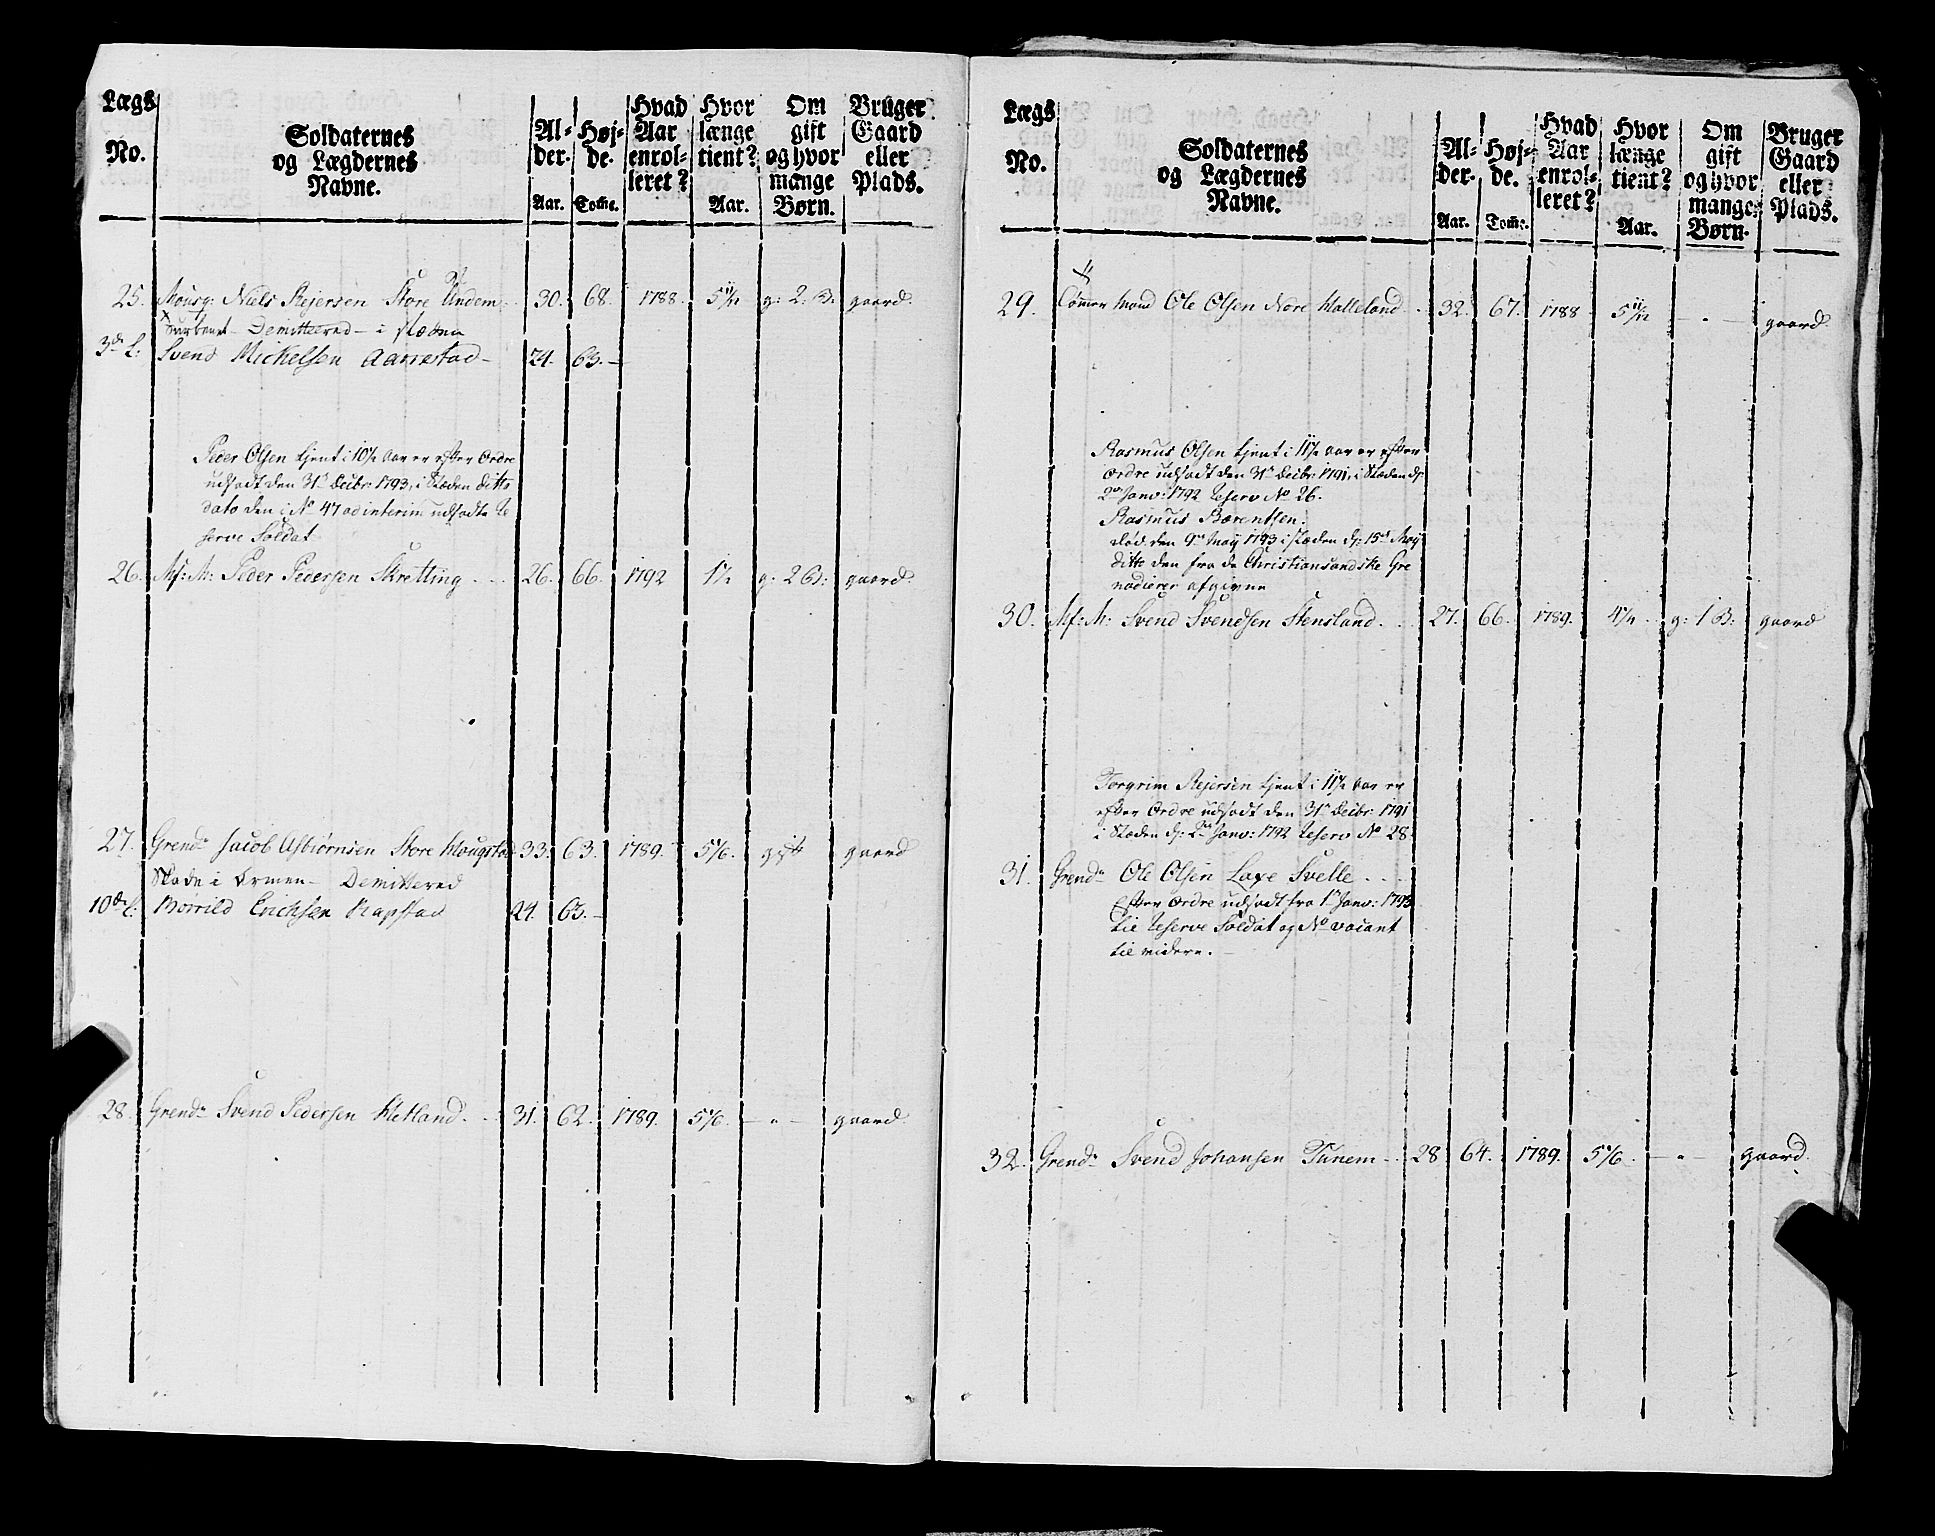 Lægs No.
Soldaternes og Lægdernes Navne.
Alder. Aar.
Højde. Tom̃e.
Hvad Aar enrolleret?
Hvor længe tient? Aar.
Om gift og hvor mange Børn.
Bruger Gaard eller Plads.
25. Mousq: Niels Rejersen Store Undem 30. 68. 1788. 5 11/12 g: 2. B: gaard
Demittered i stæden
3de L: Svend Mickelsen Aarrestad 24. 63.
Peder Olsen tjent i 10 1/2 Aar er efter Ordre
udsadt den 31te Decbr 1793, i Stæden ditto
dato den i No 47 ad interim udsadte Re
serve Soldat
26. Mf: M: Peder Pedersen Skretting 26. 66. 1792 1 1/2 g: 2 B: gaard
27. Grendr Jacob Asbiørnsen Store Hougstad 33. 63. 1789. 5 1/6. gift gaard
Skade i Armen - Demittered
10de L: Borrild Erichsen Rapstad 24. 63.
28. Grendr Svend Pedersen Hetland 31. 62. 1789. 5 1/6. - " - gaard
Lægs No.
Soldaternes og Lægdernes Navne.
Alder. Aar.
Højde. Tom̃e.
Hvad Aar enrolleret?
Hvor længe tient? Aar.
Om gift og hvor mange Børn.
Bruger Gaard eller Plads.
29. Tømmermand Ole Olsen Nore Halleland 32. 67. 1788 5 11/12 - " - gaard
Rasmus Olsen tjent i 11 1/2 Aar er efter
Ordre udsadt den 31te Decbr 1791, i Stæden d:
2den Janv: 1792 Reserv No 26.
Rasmus Bærentsen
død den 9de May 1793 i stæden d: 15de May
ditto den fra de Christiansandske Gre
nadierer afgivne
30. Mf: M: Svend Svendsen Stensland 27. 66. 1789. 4 1/4 g: 1 B: gaard
Torgrim Rejersen tjent i 11 1/2 Aar er
efter Ordre udsadt den 31te Decbr 1791
i Stæden d: 2den Janv: 1792 Reserv No 28
31. Grendr Ole Olsen Laxe Svelle
Efter Ordre udsadt fra 1te Janv: 1793
til Reserve Soldat og No vacant
til videre.
32. Grendr Svend Johansen Tunem 28 64. 1789. 5 1/6 - " - gaard